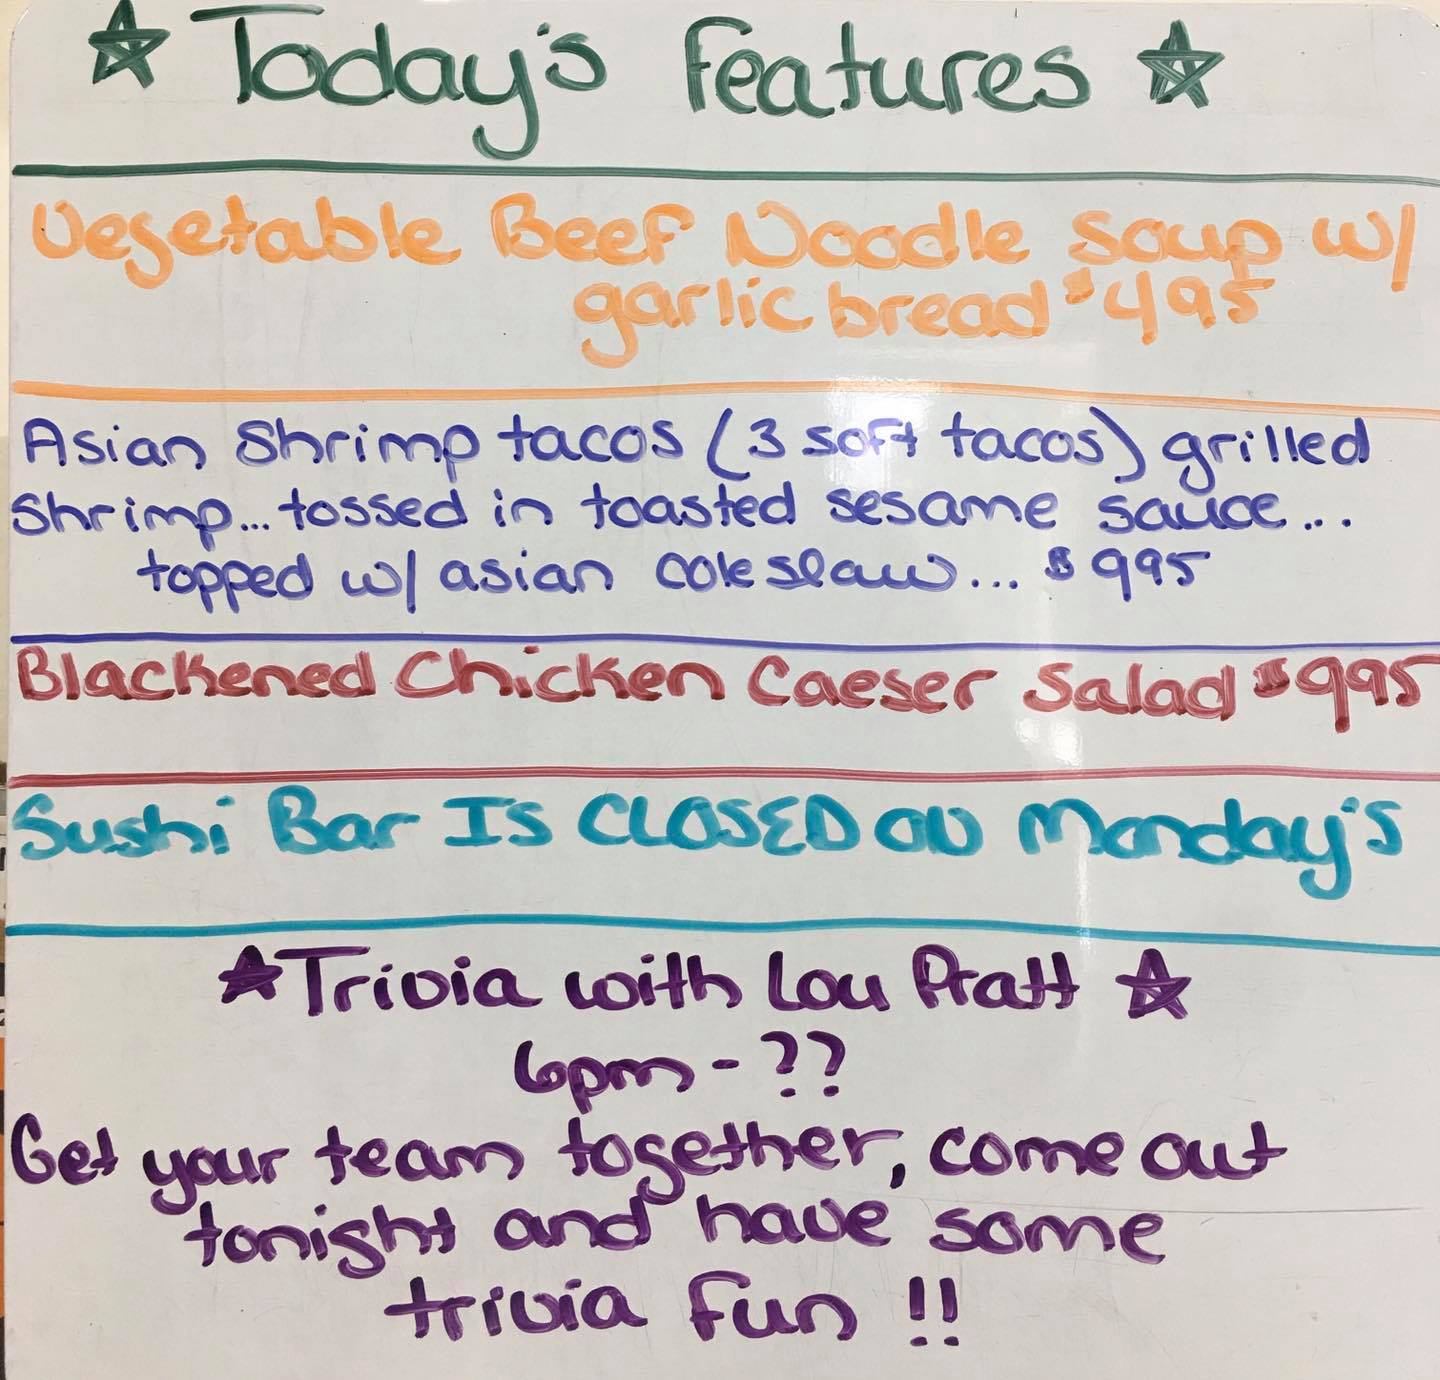 Today's Features
Vegetable Beef Noodle Soup w/
garlic bread $495
Asian Shrimp tacos (3 soft tacos) grilled
Shrimp... tossed in toasted sesame sauce...
topped w/ asian coleslaw... $995
Blackened Chicken Caeser Salad $995
Sushi Bar Is CLOSED ON Monday's
Trivia with Lou Pratt
6pm - ??
Get your team together, come out
tonight and have some
trivia fun !!